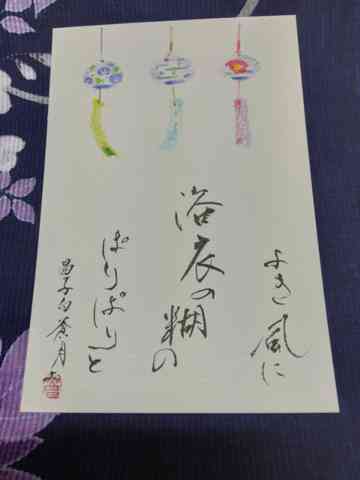 よき風に
浴衣の糊の
ぱりぱりと
昌子句蒼月